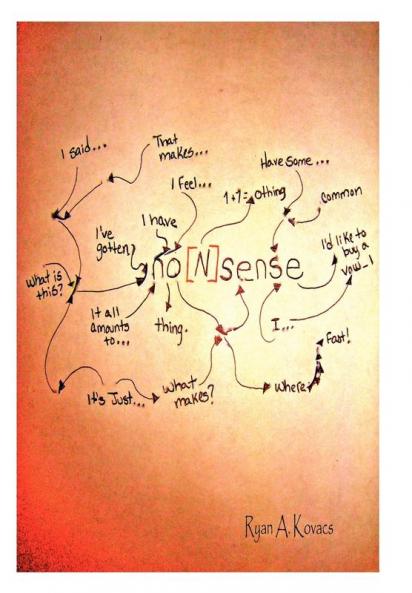 I said...
That
makes...
Have some...
I feel...
1+1=
othing
common
I've
gotten
I have
I'd like to
buy a
vow_l
no[N]sense
What is
this?
It all
amounts
to...
thing.
I...
Fast!
It's Just...
What
makes?
Where
Ryan A. Kovacs